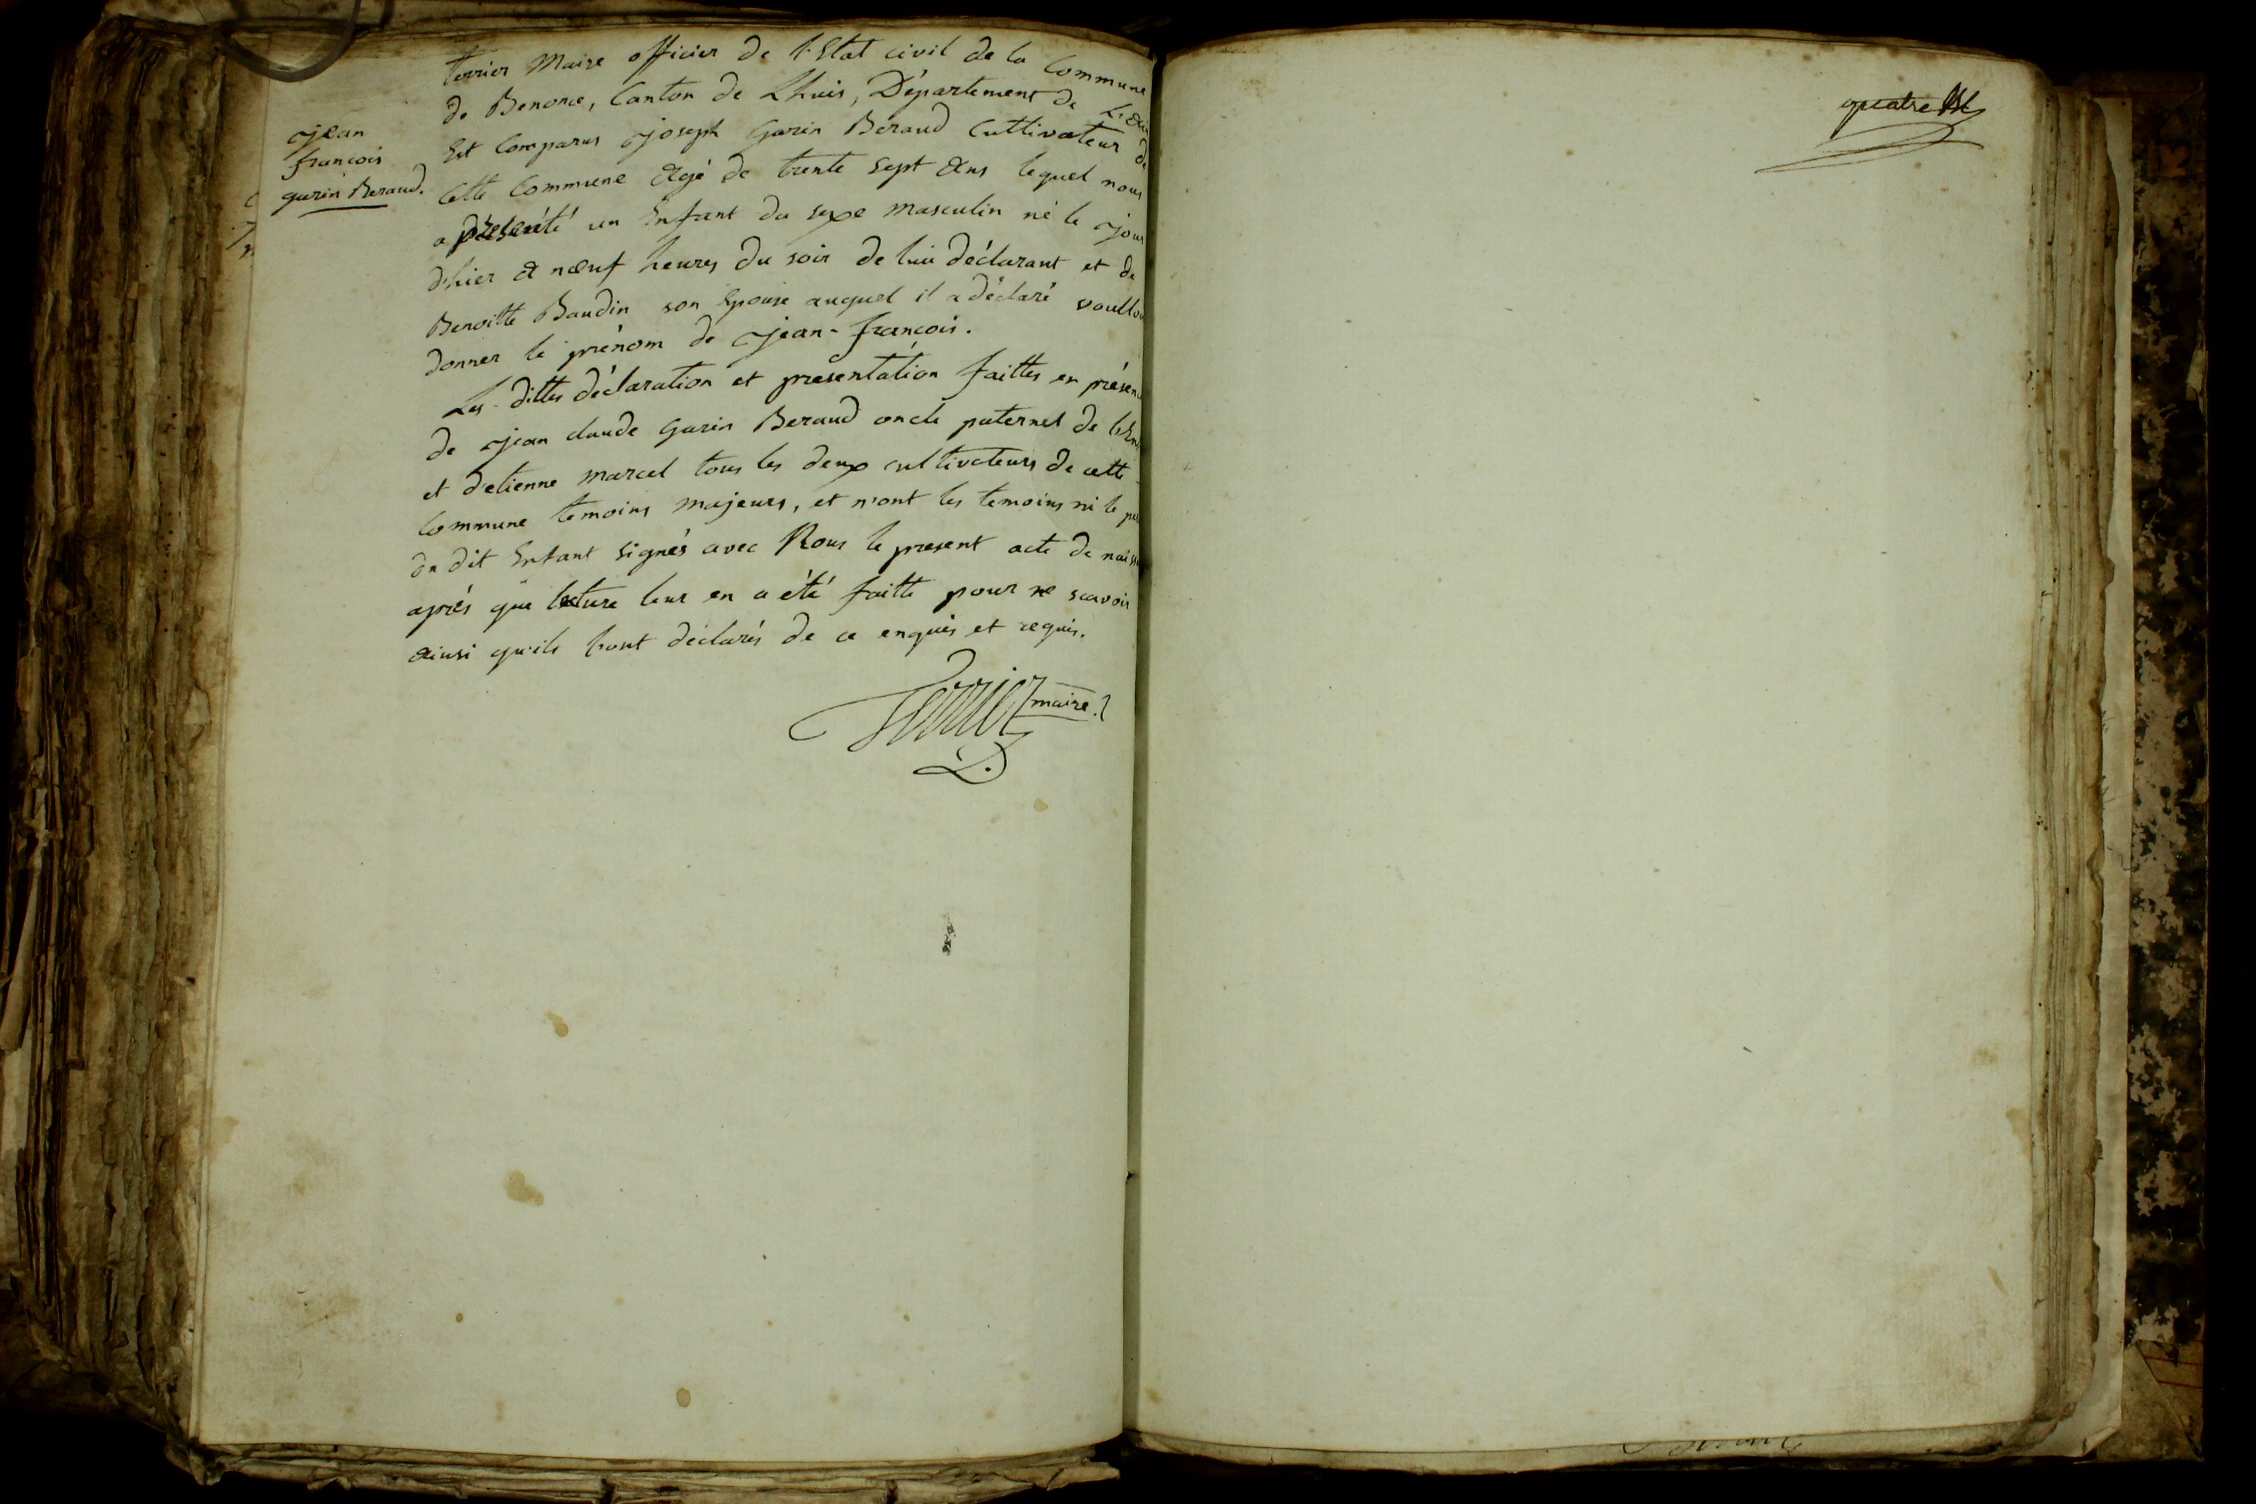 terrier Maire officier de l'Etat civil de la Commune
de Benonce, Canton de Lhuis, Département de L'ain
Est Comparus joseph Garin Beraud Cultivateur de
Cette Commune agé de trente sept ans lequel nous
a présenté un Enfant du sexe masculin né le jour
d'hier a nœuf heures du soir de lui déclarant et de
Benoitte Baudin son Epouse auquel il a déclaré voullo
donner le prénom de jean-francois.
Les dittes déclaration et presentation faittes en présen
de jean claude Garin Beraud oncle paternel de l'En
et d'etienne marcel tous les deux cultivateurs de cette
Commune temoins majeurs, et n'ont les temoins ni le
du dit Enfant signés avec Nous le present acte de naiss
aprés que lecture leur en a été faitte pour ne scavoir
ainsi qu'ils l'ont déclarés de ce enquis et requis.
Terrier maire.
jean
francois
garin Beraud.
quatre